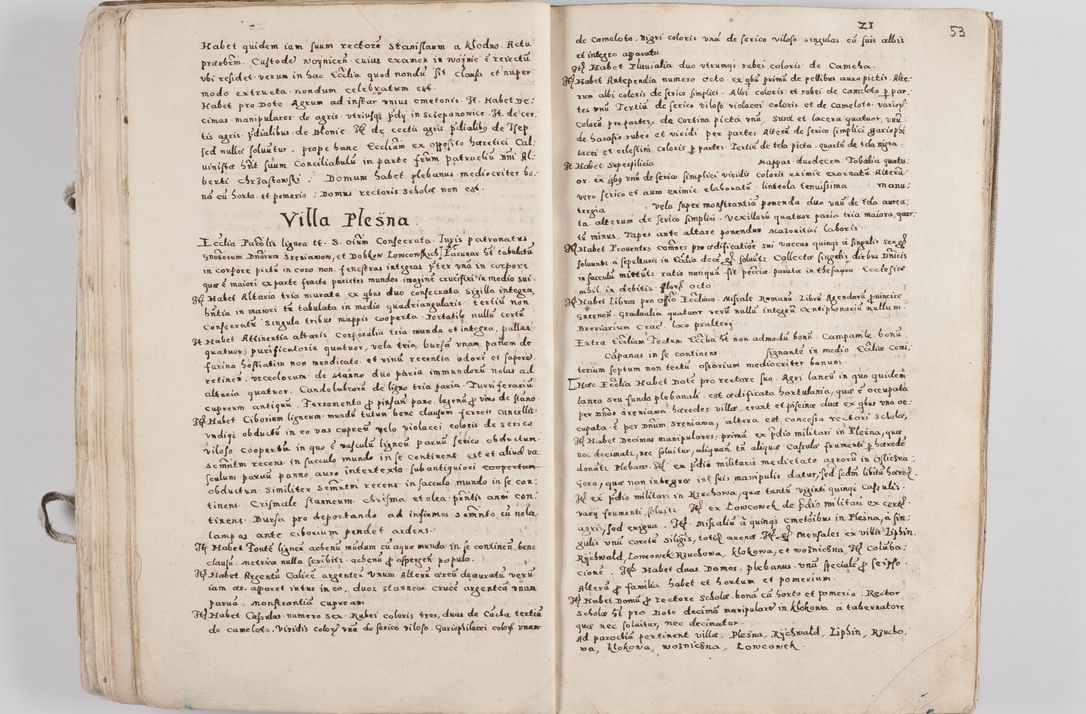 Habet quidem iam suum rectorē Stanislaum a Kłodno. Actu
præsbem. Custode woynicen̄. cuius examen in woynic ē reiectū
vbi residet. verum in hac Eccl̄ia quod nondū sit clausa et nuper
modo extructa nondum celebratum est.
Habet pro Dote Agrum ad instar vnius cmetonis. It. Habet De-
cimas manipulares de agris vtriusq̃ p̄dij in sciepanowice. It. de cer-
tis agris p̄dialibus de Blonie. It. de certis agris p̄dialibꝯ de Isep
sed nulla soluuntur. prope hanc Eccl̄iam ex opposito hæretici Cal-
uinistæ hn̄t suum Conciliabulū in parte fr̄um patrueliū Dn̄i Al-
berti Chrząstowski. Domum habet plebanus mediocriter bo-
nā cū horto et pomerio. Domus rectoris scholæ non est.
Villa Pleśna.
Eccl̄ia Paro̅lis lignea tt. S. oīum Consecrata. Iuris patronatus
Gnosorum Dn̄orum Sreniawon̄, et Dobkow Lowconskich. Lacunar ht̄ tabulatū
in corpore pictū in coro non. fenestras integras p̄ter vnā in corpore
quæ ē maiori ex parte fracta parietes mundos. imaginē crucifixi in medio sui.
It. Habet Altaria tria murata ex qbus duo consecrata sigilla integra
hn̄tia in maiori tū tabulata in medio quadriangularis. tertiū non
Consecratū. Singula tribus mappis cooperta. Portatile nullū certū
It Habet Attinentia altaris. Corporalia tria munda et integra, pallas
quatuor, purificatoria quatuor, vela tria, bursā vnam panem de
farina hostiatim non mendicata. et vinū recentia odorē et saporē
retinen̄. vrceolorum de stanno duo paria immundorū nolas ad
altaria quatuor. Candelabrorū de ligno tria paria. Turriferariū
cupreum antiquū. Ferramenta p̄ pinsan̄ pane. lagenā p̄ vino de stāno
It. Habet Ciborium ligneum mundū tutum bene clausum ferreis cancellis
vndiqꝫ obductū in eo vas cupreū velo violacei coloris de serico
viloso Coopertū in quo ē vasculū ligneū paruū serico obductum.
scm̄ntm recens in sacculo mundo in se continens. est et aliud va-
sculum paruū panno auro intertexto subantiquiori coopertum
obductum. Similiter scm̄ntm recens in sacculo mundo in se con-
tinens. Crismale stanneum. chrisma et olea pn̄tis anni con-
tinens. Bursa pro deportando ad infirmos scm̄nto cū nola
lampas ante ciborium pendet ardens.
It. Habet Fontē ligneū aobenū mūdum cū aqua munda in se continen̄, bene
clausū. metrica nulla scribitr. aobenū p̄ aspergen̄ populo.
It. Habet Argentū Calicē argenteū vnum Alterū æreū deauratū verū
iam as. aparet intus in eo, duos stanneos crucē argenteā vnam
paruā. monstrantiā cupream.
It. Habet Casulas numero sex. Rubei coloris tres, duas de Cācha tertiā
de cameloto. Viridis colorꝭ vnā de serico viloso. Gariophilacei colorꝭ vnam
ZI
53
de Cameloto. Nigri coloris vnā de serico viloso singulas cū suis albis
et integro apparatu
It. Habet Pluuialia duo vtrumqꝫ rubei coloris de Camcha.
It. Habet Antependia numero octo. ex qbꝯ primū de pellibus auro pictis. Alte-
rum albi coloris de serico simplici. Albi coloris et rubei de cameloto p̄ par-
tes vnū. Tertiū de serico viloso violacei coloris et de Cameloto. varioꝝ
Colorū per partes, de Cortina picta vnū, sunt et lacera quatuor, vnū
de harasio rubeo et viridi per partes. Alterū de serico simplici gariophi
lacei et cælestini coloris p̄ partes. Tertiū de tela picta. quartū de tela nigra.
It. Habet Superpilicia Mappas duodecem. Tobalia quatu-
or. ex qbꝯ vnū de serico simplici viridis coloris eximie exornatū. Alterū
vero serico et auro eximie elaboratū. linteola tenuissima manu-
tergia vela super monstrantiā ponenda duo vnū de tela aurea-
ta. alterum de serico simplici. Vexillorū quatuor paria tria maiora, quar-
tū minus. Tapes ante altare ponendus Mazouitici laboris.
It. Habet Prouentꝯ com̄es p̄ ædificatione sui vaccas quinqꝫ a singulis sex gꝫ
soluuntr. a sepulturis in Eccl̄ia decē gꝫ soluitr. Collectæ singulis diebus Dn̄icis
in sacculū mittutr. ratio nunquā fit. peccia parata in thesauro Ecclesiæ
nihil. in debitis. flꝫ. octo
It. Habet Libros pro offō Eccl̄iæ. Missale Romanū. Librū Agendorū prouinciæ
Gnesnen̄. Gradualia quatuor verū nullū integrū antiphonariū nullum.
Breviarium Crac. loco psalterij.
Extra Eccl̄iam Tectum Eccl̄ia ht̄ non admodū bonū. Campanile bonū.
Cāpanas in se continens signante in medio Eccl̄iæ Cemi-
terium septum non tectū osteorium mediocriter bonum.
Hæc Eccl̄ia Habet Dotē pro rectore suo. Agri laneū in quo quidem
laneo seu fundo plebanali est ædificata hortulania, quæ ē occupata
per Dn̄os Sreniawā hæredes villæ, erant et piscinæ duæ ex qbus vna oc-
cupata ē per Dn̄um Sreniawā, altera est concessa rectori scholæ,
It Habet Decimas manipulares. primā ex p̄dio militari in Pleśna, quæ
nec decimatr, nec soluitur, aliquan̄ tn̄ aliquæ Casulæ frumenti p̄ hærede
donātr Plebano. It. ex p̄dio militaris medietate agrorū in Ossiecna
gora, quæ non integræ in suis manipulis datur, sed sedm̄ libitū hæred.
It. ex p̄dio militari in Rzuchowa, quæ tantū viginti quinqꝫ Capulis
varij frumenti soluitr. It. ex Lowczowek de p̄dio militari ex certꝭ
agris, sed exigua. It. Missaliū a quinqꝫ Cmetōibus in Pleśna, a sin-
gulis vnū Coretū siliginis, totid avenæ. It. et Mensales ex villis Lipsin.
Rychwald, Lowconek, Rzuchowa, Klokowa, et Woźniczna, It. Coluba-
cione. It. Habet duas Domos. plebanus vnā specialē p̄ seipso
Alterā p̄ familia habet et hortum et pomerium.
It. Habet Domū p̄ rectore scholæ bona cū horto et pomeria. Rector
scholæ ht̄ pro Dote decimā manipularē in Klokowa a tabernatore
quæ nec soluitur, nec decimatur.
Ad parochiā pertinent villæ, Pleśna, Rychwald, Lipsin, Rzucho-
wa, Klokowa, Woźniczna, Lowconek.